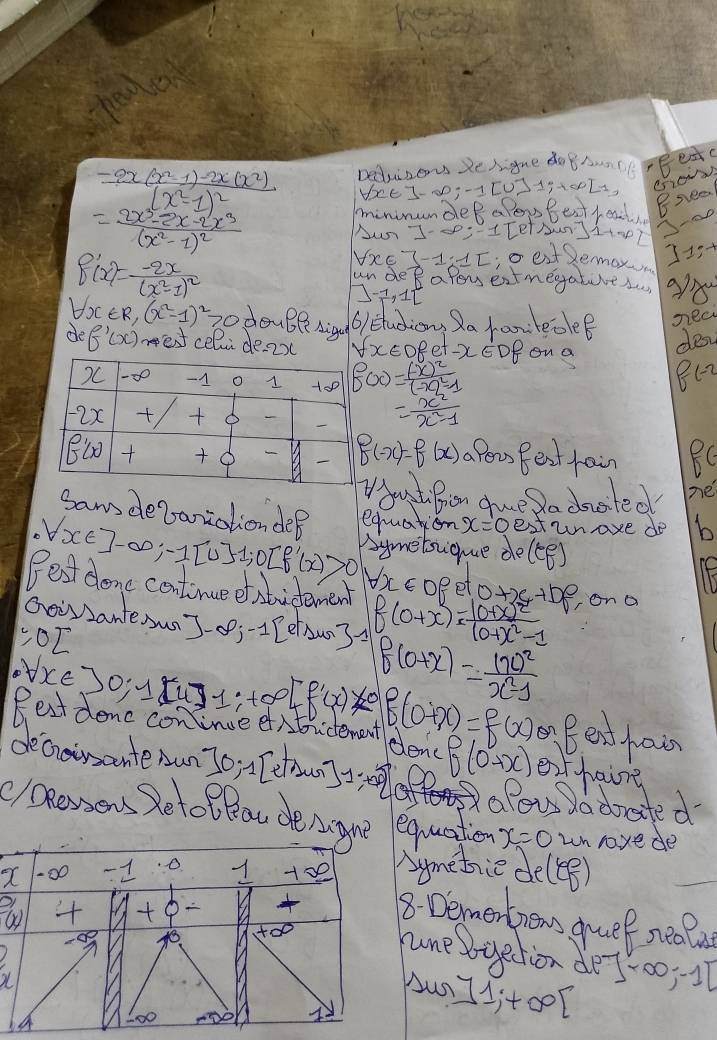 -2x(x²-1)-2x(x²)
(x²-1)²
= 2x³-2x-2x³
(x²-1)²
f'(x)= -2x
(x²-1)²
∀x∈R, (x²-1)²>0 donc le signe
de f'(x) est celui de -2x
x -∞ -1 0 1 +∞
-2x + / + 0 - -
f'(x) + + 0 - -
Sens de variation de f
• ∀x∈]-∞;-1[∪]1;0[ f'(x)>0
f est donc continue et strictement
croissante sur ]-∞;-1[ et sur ]-1
;0[
• ∀x∈ ]0;1[∪]1;+∞[ f'(x)<0
f est donc continue et strictement
décroissante sur ]0;1[ et sur ]1;+∞[
c/ Dressons le tableau de signe
x -∞ -1 0 1 +∞
f'(x) + + 0 - +
-∞ 0 +∞
1 -∞ -∞ 1
Déduisons le signe de f sur Df
∀x∈]-∞;-1[∪]1;+∞[ 1,
minimum de f alors f est positive
sur ]-∞;-1[ et sur ]1+∞[
∀x∈ ]-1;1[; 0 est le maximum
un de f alors est négative sur
]-1,1[
6/ Etudions la parité de f
∀x∈Df et -x∈Df on a
f(x)= (-x)²
(-x)²-1
= x²
x²-1
f(-x)=f(x) alors f est pair
7/ Justifion que la droite d'
équation x=0 est un axe de
symétrique de (Cf)
∀x∈Df et 0+x∈+Df, on a
f(0+x)= (0+x)²
(0+x)²-1
f(0+x) = (x)²
x²-1
f(0+x)=f(x) or f est pair
donc f(0+x) est paire
alors la droite d'
équation x=0 un axe de
symétrie de (Cf)
8- Démontrons que f realise
une bijection de ]-∞;-1[
sur ]1;+∞[
f est c
croiss
f real
]-∞
]1;+
9/ Ju
f(-2